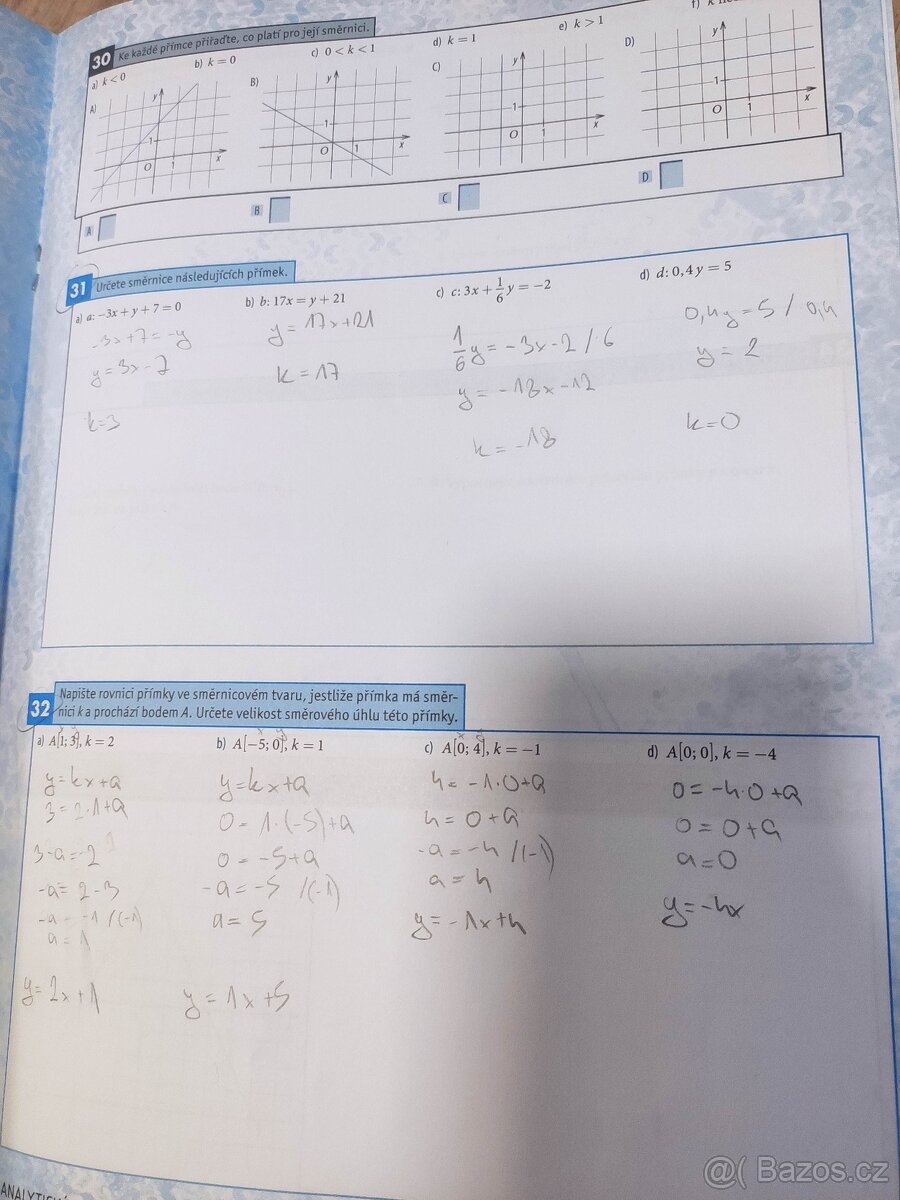 30 Ke každé přímce přiřaďte, co platí pro její směrnici.
a) k < 0 b) k = 0 c) 0 < k < 1 d) k = 1 e) k > 1 f)
A) B) C) D)
y y y y
1 1 1 1
O 1 x O 1 x O 1 x O 1 x
A B C D
31 Určete směrnice následujících přímek.
a) a: −3x + y + 7 = 0 b) b: 17x = y + 21 c) c: 3x + 1/6 y = −2 d) d: 0,4y = 5
-3x+7=-y
y=3x-7
k=3
y=17x+21
k=17
1/6 y = -3x-2 /·6
y = -18x-12
k = -18
0,4y=5 / 0,4
y = 2
k=0
32 Napište rovnici přímky ve směrnicovém tvaru, jestliže přímka má směr-
nici k a prochází bodem A. Určete velikost směrového úhlu této přímky.
a) A[1; 3], k = 2 b) A[−5; 0], k = 1 c) A[0; 4], k = −1 d) A[0; 0], k = −4
y=kx+q
3=2·1+q
3-q=2
-q=2-3
-q=-1 /(-1)
q=1
y=2x+1
y=kx+q
0=1·(-5)+q
0=-5+q
-q=-5 /(-1)
q=5
y=1x+5
4=-1·0+q
4=0+q
-q=-4 /(-1)
q=4
y=-1x+4
0=-4·0+q
0=0+q
q=0
y=-4x
@( Bazos.cz